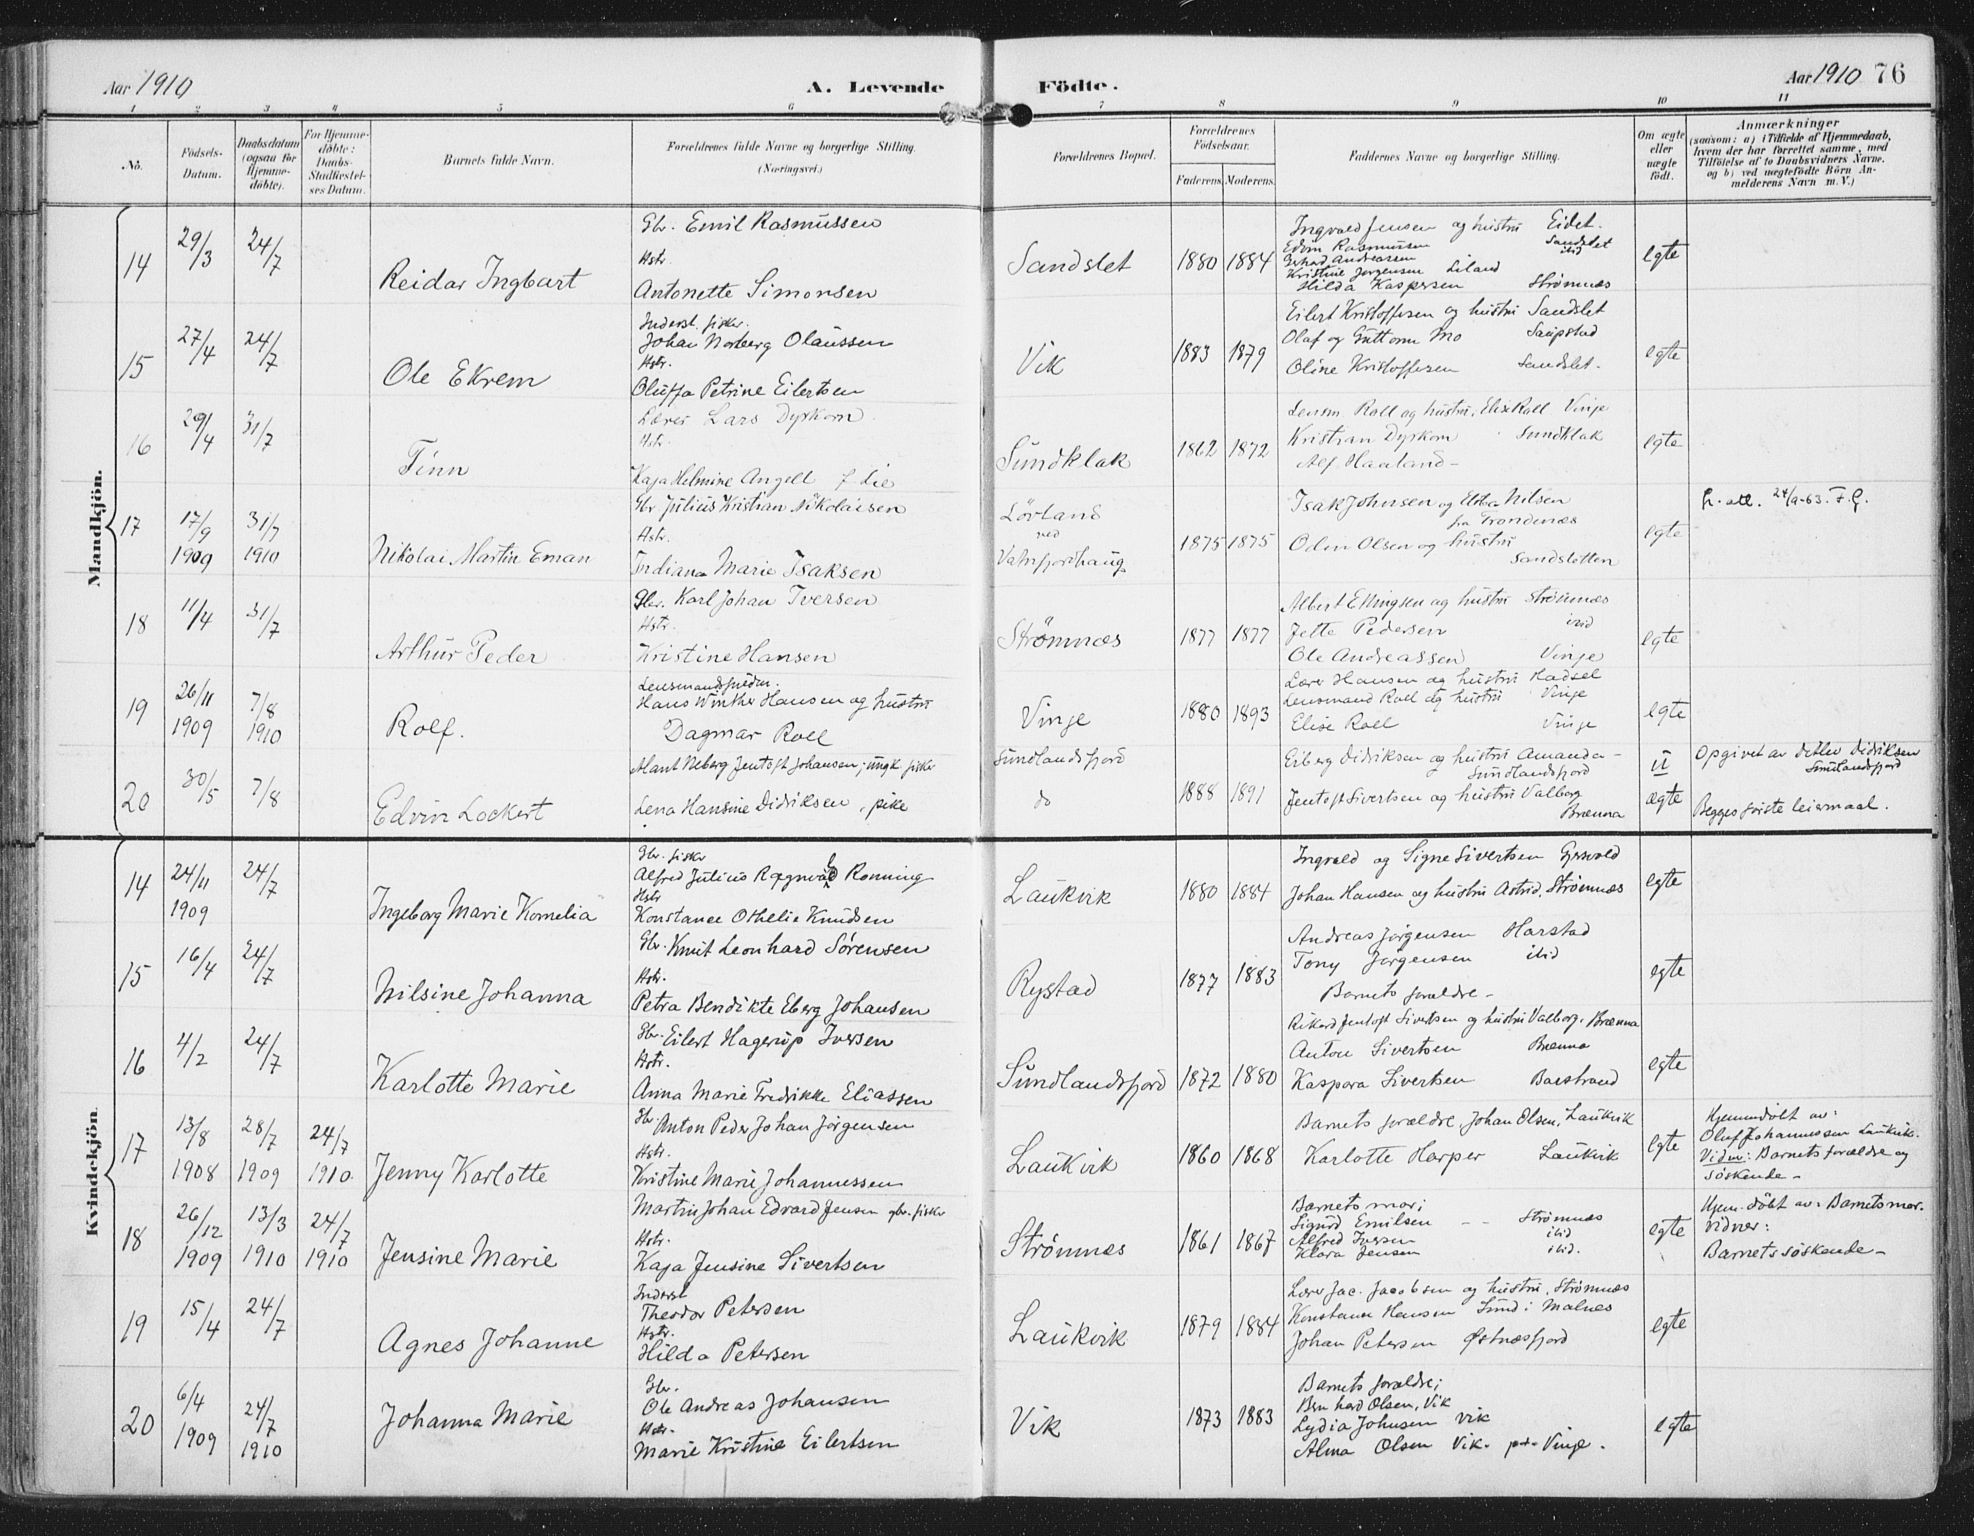 Aar 1910
A. Levende Födte.
Aar 1910 76
1 2 3 4 5 6 7 8 9 10 11
No.
Födsels-Datum.
Daabsdatum (ogsaa for Hjemmedöbte).
For Hjemmedöbte: Daabs-Stadfæstelses Datum.
Barnets fulde Navn.
Forældrenes fulde Navne og borgerlige Stilling. (Næringsvei.)
Forældrenes Bopæl.
Forældrenes Födselsaar.
Faderens. Moderens.
Faddernes Navne og borgerlige Stilling.
Om ægte eller uægte födt.
Anmærkninger
(saasom: a) i Tilfælde af Hjemmedaab, hvem der har forrettet samme, med Tilföielse af to Daabsvidners Navne, og b) ved uægtefödte Börn Anmelderens Navn m. V.)
Mandkjön.
14 29/3 24/7 Reidar Ingbart
Gbr. Emil Rasmussen
Hstr.
Antonette Simonsen
Sandslet 1880 1884
Ingvald Jensen og hustru Eidet.
Edvin Rasmussen Sandslet
Erhard Andreassen itid
Kristine Jørgensen Liland
Hilda Kaspersen Strømnæs
egte
15 27/4 24/7 Ole Ekrem
Inderst. fisker.
Johan Norberg Olaussen
Hstr.
Oluffa Petrine Eilertsen
Vik 1883 1879
Eilert Kristoffersen og hustru Sandslet
Olaf og Guttorm Mo Saupstad
Oline Kristoffersen Sandslet.
egte
16 29/4 31/7 Finn
Lærer Lars Dyrkorn
Hstr.
Kaja Helmine Angell f Lie
Sundklak 1862 1872
Lensm Roll og hustru, Elise Roll Vinje
Kristian Dyrkorn Sundklak
Alf Haaland -
egte
17 17/9 1909 31/7 1910 Nikolai Martin Eman
Gbr. Julius Kristian Nikolaisen
Hstr.
Indiana Marie Isaksen
Lörland
ved
Vatnfjordhaug
1875 1875
Isak Johnsen og Ebba Nilsen
fra Trondenæs
Odin Olsen og hustru
Sandsletten
egte
L. att. 24/9-63. F.G.
18 11/4 31/7 Arthur Peder
Gbr. Karl Johan Iversen
Hstr.
Kristine Hansen
Strømnæs 1877 1877
Albert Ellingsen og hustru Strömnæs
Jette Pedersen itid
Ole Andreassen Vinje
egte
19 26/11 1909 7/8 1910 Rolf.
Hans Winther Hansen og hustru
Dagmar Roll
Vinje 1880 1893
Lærer Hansen og hustru Hadsel
Lensmand Roll og hustru Vinje
Elise Roll Vinje
egte
20 30/5 7/8 Edvin Lockert
Jentoft Johansen; ungk. fisker
Lena Hansine Didriksen, pike
Sundlandsfjord
do
1888 1891
Eiberg Didriksen og hustru Amanda-
Sundlandsfjord
Jentoft Sivertsen og hustru Valborg
Brænna
U
ægte
Opgivet av Detlev Didriksen
Sundlandsfjord
Begges første leiermaal.
Kvindekjön.
14 24/11 1909 24/7 Ingeborg Marie Kornelia
Gbr. fisker
Alfred Julius Rognvald Rønning
Hstr
Konstance Othelie Knudsen
Laukvik 1880 1884
Ingvald og Signe Sivertsen
Johan Hansen og hustru Astrid. Strømnæs
egte
15 16/4 24/7 Nilsine Johanna
Gbr. Knut Leonhard Sørensen
Hstr.
Petra Bendikte Eberg Johansen
Rystad 1877 1883
Andreas Jörgensen Harstad
Tony Jörgensen itid
Barnets forældre -
egte
16 4/2 24/7 Karlotte Marie
Gbr. Eilert Hagerup Iversen
Hstr.
Anna Marie Fredrikke Eliassen
Sundlandsfjord 1872 1880
Rikard Jentoft Sivertsen og hustru Valborg. Brænna
Anton Sivertsen Brænna
Kaspara Sivertsen Barstrand
egte
17 13/8 1908 28/7 1909 24/7 1910. Jenny Karlotte
Gbr Anton Peder Johan Jörgensen
Hstr.
Kristine Marie Johannessen
Laukvik 1860 1868
Barnets forældre Johan Olsen, Laukvik
Karlotte Harper Laukvik
egte
Hjemmedøbt av:
Oluf Johannessen Laukvik.
Vidner: Barnets forældre og
søskende -
18 26/12 1909 13/3 1910 24/7 1910 Jensine Marie
Martin Johan Edvard Jensen gbr. fisker
Hstr.
Kaja Jensine Sivertsen
Strømnæs 1861 1867
Barnets mor;
Sigurd Emilsen - - Strømnæs
Alfred Iversen itid
Klara Jensen itid.
egte
Hjem. døbt av: Barnets mor.
Vidner:
Barnets søskende -
19 15/4 24/7 Agnes Johanne
Inderst
Theodor Petersen
Hstr.
Hilda Petersen
Laukvik 1879 1884
Lærer Jac. Jacobsen og hustru. Strømnæs
Konstanse Hansen Sund i Malnes
Johan Petersen Østnæsfjord
egte
20 6/4 1909 24/7 1910 Johanna Marie
Gbr.
Ole Andreas Johansen
Hstr.
Marie Kristine Eilertsen
Vik 1873 1883
Barnets forældre;
Bernhard Olsen, Vik
Lydia Johnsen Vik
Alma Olsen Vik. Vinje.
egte